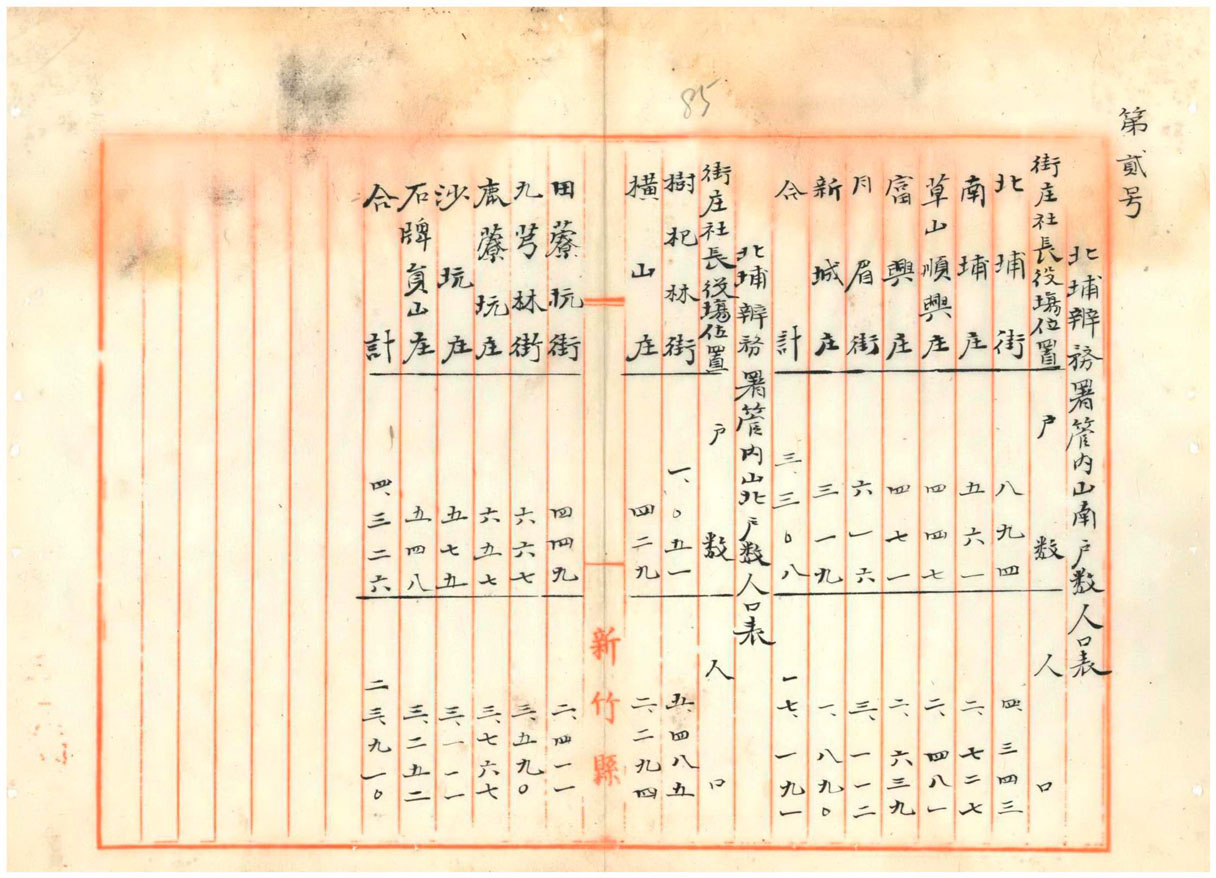 85
第貳号
北埔辨務署管内山南戸数人口表
街庄社長役場位置 戸数 人口
北埔街 八九四 四、三四三
南埔庄 五六一 二、七二七
草山順興庄 四四七 二、四八一
富興庄 四七一 二、六三九
月眉街 六一六 三、一一二
新城庄 三一九 一、八九〇
合計 三、三〇八 一七、一九一
北埔辨務署管内山北戸数人口表
街庄社長役場位置 戸数 人口
樹杞林街 一、〇五一 五、四八五
横山庄 四二九 二、二九四
新竹縣
田藔坑街 四四九 二、四一一
九芎林街 六六七 三、五九〇
鹿藔坑庄 六五七 三、七六七
沙坑庄 五七五 三、一一一
石牌員山庄 五四八 三、二五二
合計 四、三二六 二三、九一〇